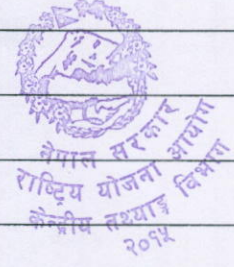 नेपाल सरकार
राष्ट्रिय योजना आयोग
केन्द्रीय तथ्याङ्क विभाग
२०६५